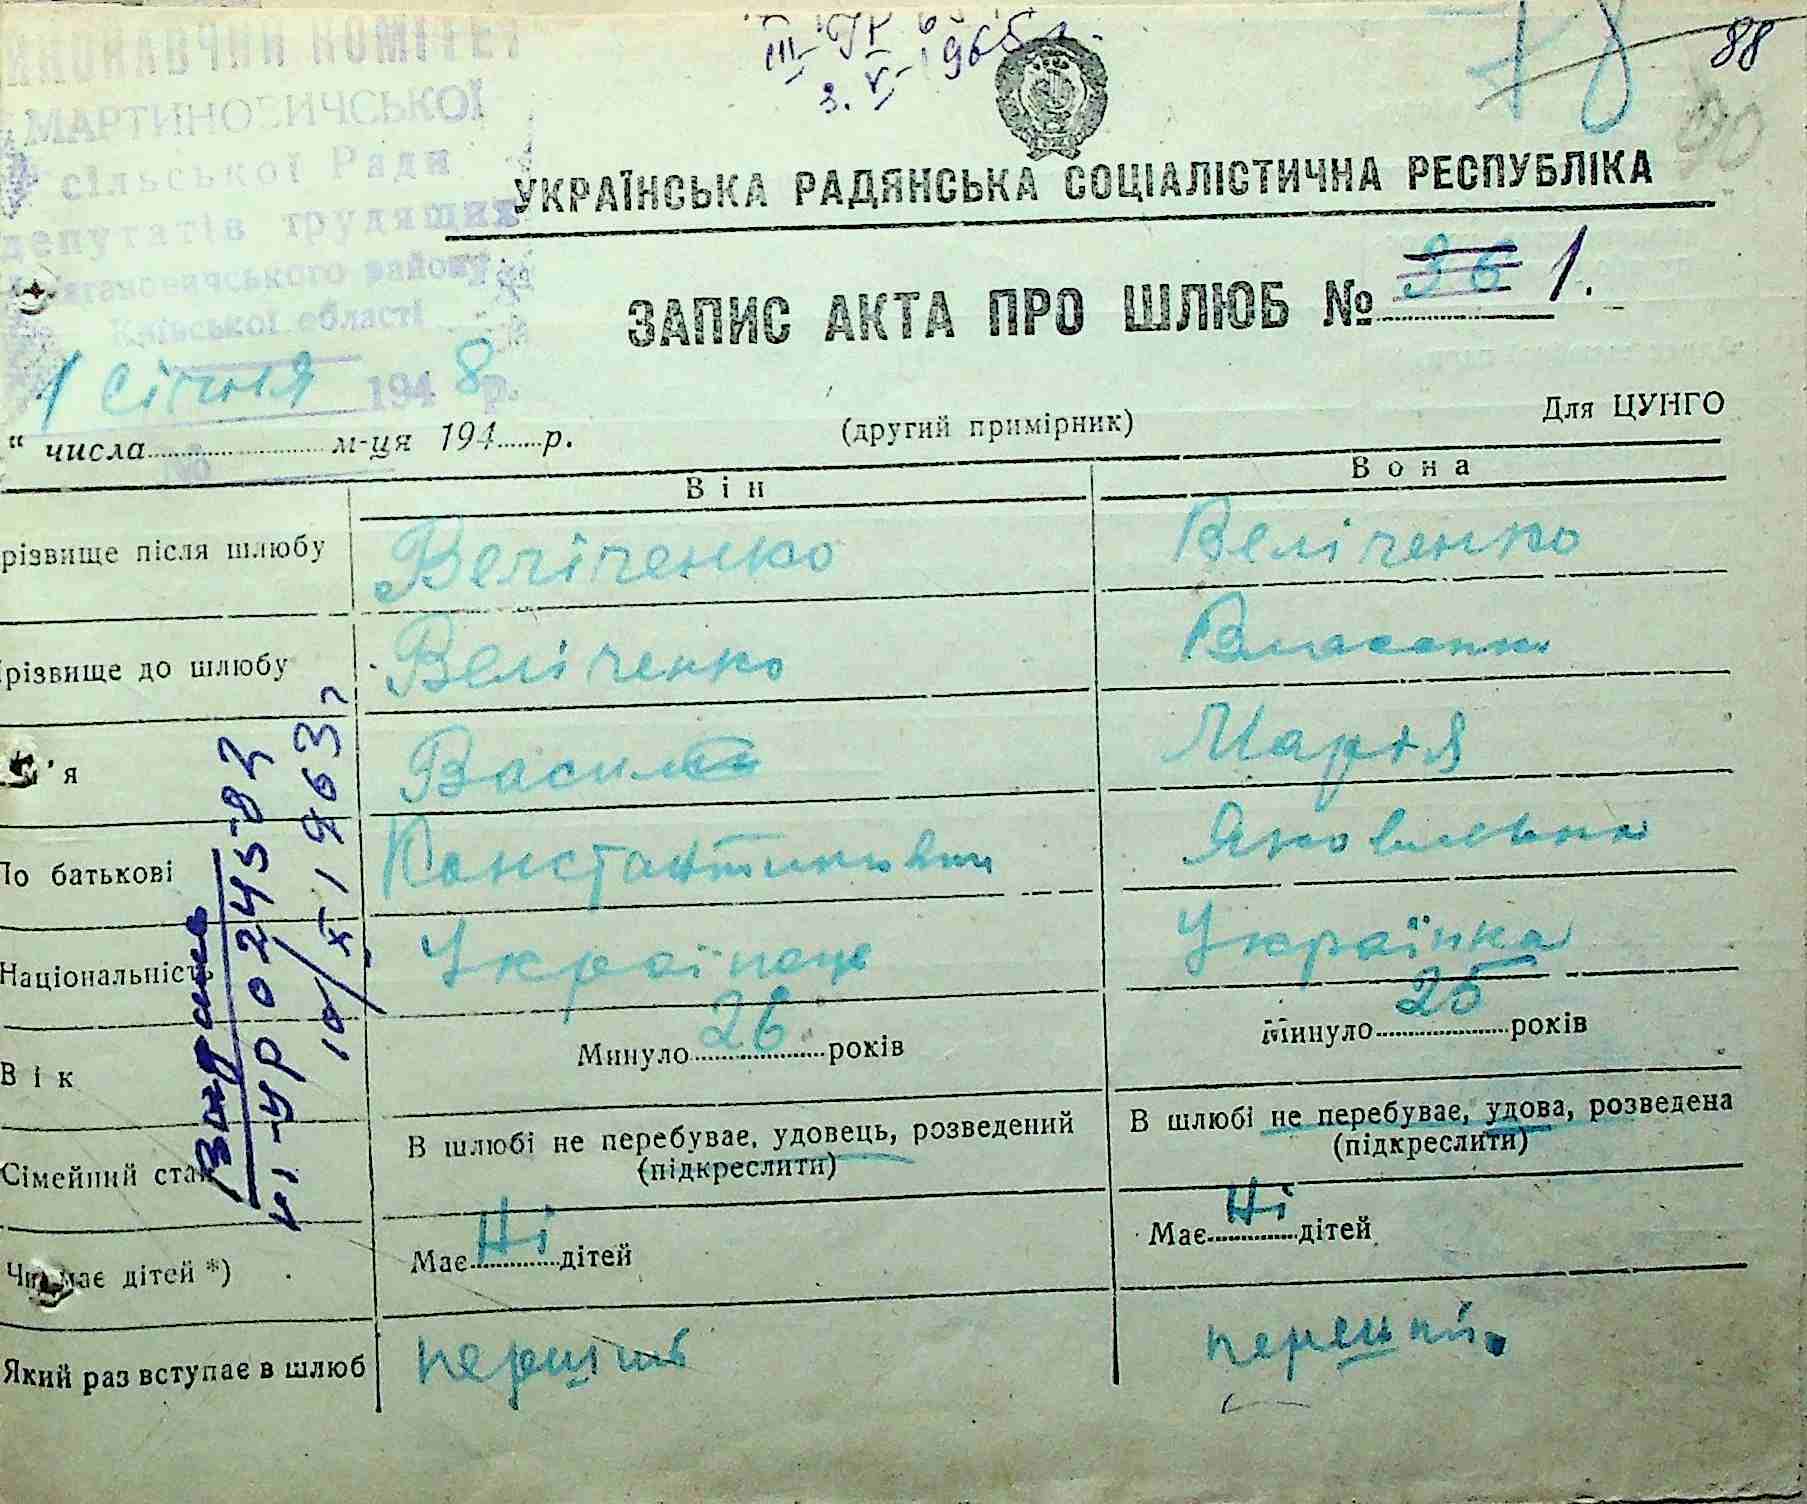 ВИКОНАВЧИЙ КОМІТЕТ
МАРТИНОВИЧСЬКОЇ
сільської Ради
депутатів трудящих
району
Київської області
1 Січня 1948р.
3. V. 1965 г.
78
88
90
УКРАЇНСЬКА РАДЯНСЬКА СОЦІАЛІСТИЧНА РЕСПУБЛІКА
ЗАПИС АКТА ПРО ШЛЮБ № 36 1.
“ числа м-ця 194 р.
(другий примірник)
Для ЦУНГО
Він Вона
різвище після шлюбу Веліченко Веліченко
різвище до шлюбу Веліченко Власенко
м'я Василь Марія
По батькові Константинович Яковлевна
Національність Українець Українка
Вік Минуло 26 років Минуло 25 років
Сімейний стан В шлюбі не перебуває, удовець, розведений (підкреслити) В шлюбі не перебуває, удова, розведена (підкреслити)
Чи має дітей *) Має Ні дітей Має Ні дітей
Який раз вступає в шлюб перший перший.
II-УР 024583
10/XI 1963 г